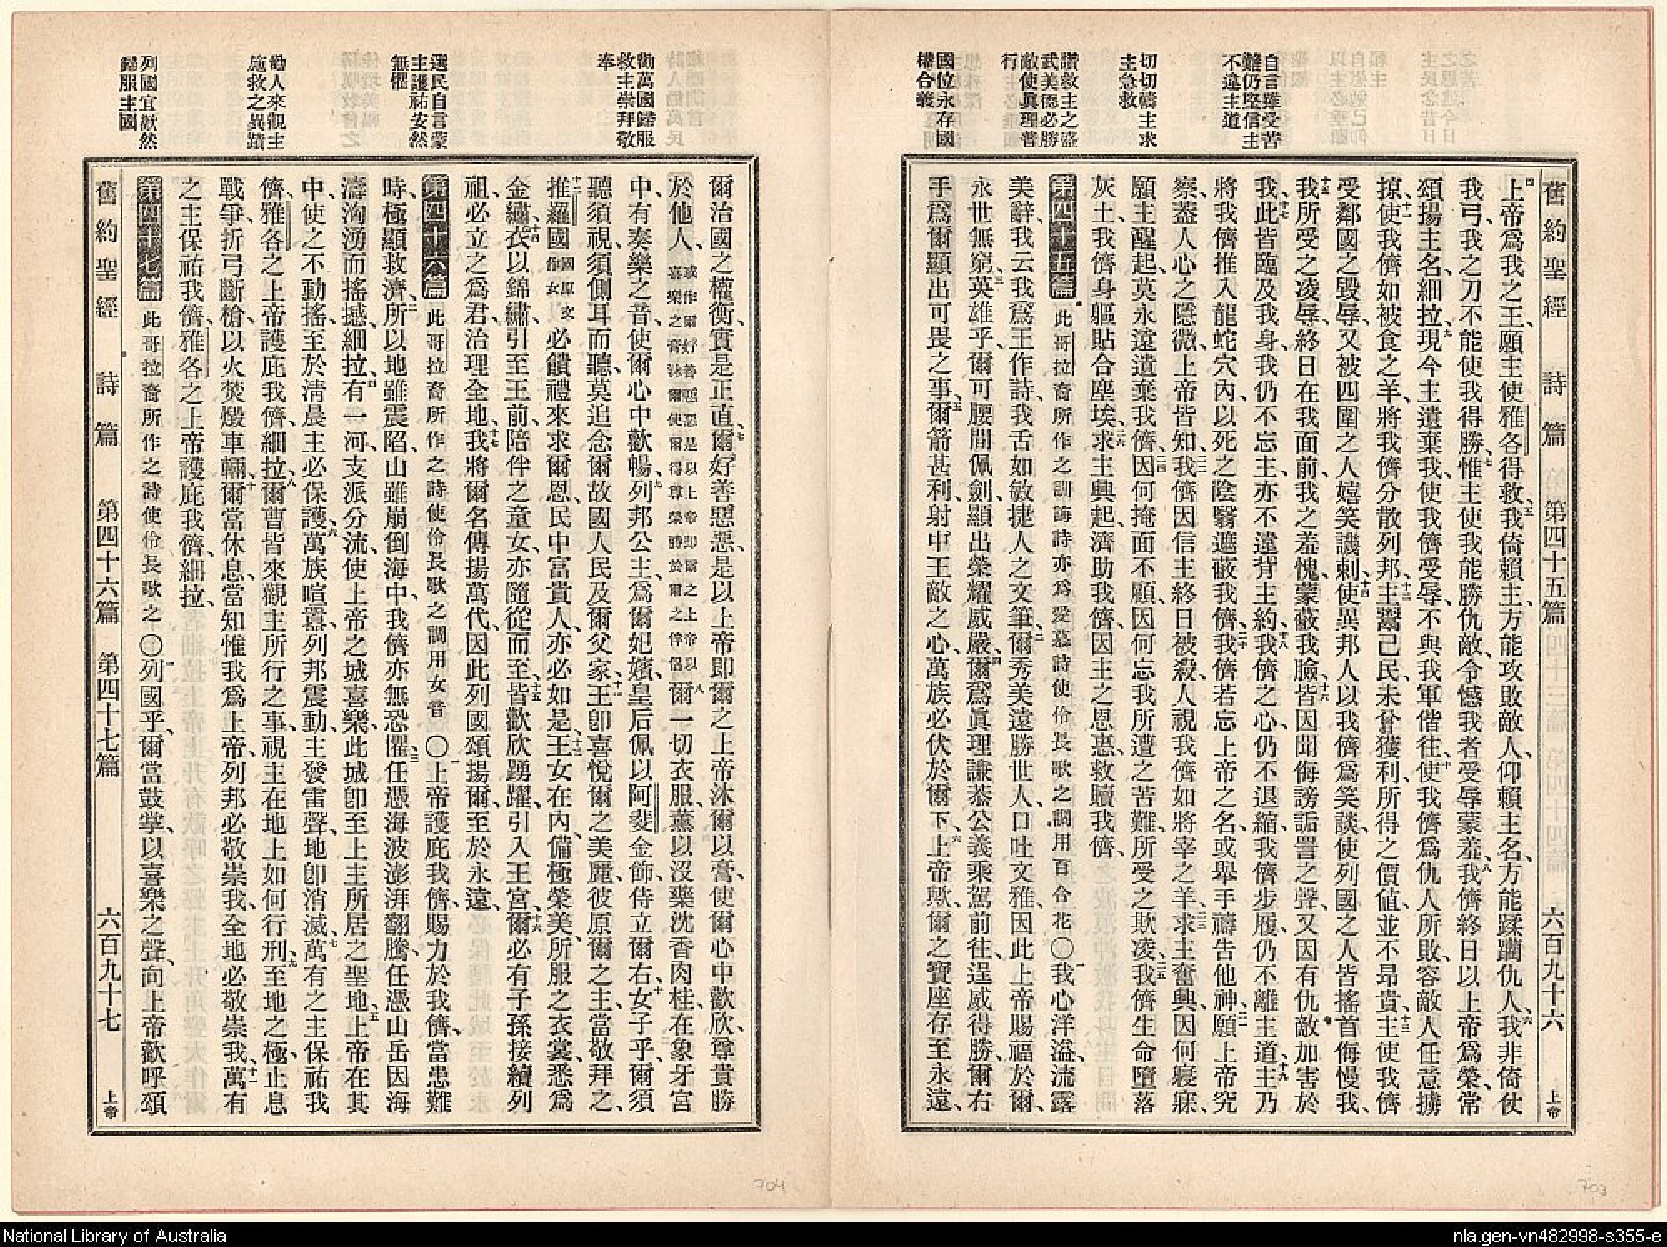 自言雖受苦
難仍堅信主
不違主道
切切禱主求
主急救
讚救主之盛
武美德必勝
敵使眞理普
行
國位永存國
權合義
舊約聖經 詩篇 第四十五篇 六百九十六 上帝
四上帝爲我之王、願主使雅各得救、五我倚賴主方能攻敗敵人、仰賴主名、方能蹂躪仇人、六我非倚仗
我弓、我之刀不能使我得勝、七惟主使我能勝仇敵、令憾我者受辱蒙羞、八我儕終日以上帝爲榮、常
頌揚主名、細拉、九現今主遺棄我、使我儕受辱、不與我軍偕往、十使我儕爲仇人所敗、容敵人任意擄
掠、十一使我儕如被食之羊、將我儕分散列邦、十二主鬻己民、未嘗獲利、所得之價値、並不昂貴、十三主使我儕
受鄰國之毀辱、又被四圍之人嬉笑譏刺、十四使異邦人以我儕爲笑談、使列國之人皆搖首侮慢我、
十五我所受之凌辱、終日在我面前、我之羞愧、蒙蔽我臉、十六皆因聞侮謗詬詈之聲、又因有仇敵加害於
我、十七此皆臨及我身、我仍不忘主、亦不違背主約、十八我儕之心、仍不退縮、我儕步履、仍不離主道、十九主乃
將我儕推入龍蛇穴內、以死之陰翳遮蔽我儕、二十我儕若忘上帝之名、或舉手禱告他神、二一願上帝究
察、蓋人心之隱微、上帝皆知、二二我儕因信主終日被殺、人視我儕如將宰之羊、二三求主奮興、因何寢寐、
願主醒起、莫永遠遺棄我儕、二四因何掩面不顧、因何忘我所遭之苦難、所受之欺凌、二五我儕生命墮落
灰土、我儕身軀貼合塵埃、二六求主興起濟助我儕、因主之恩惠救贖我儕、
第四十五篇 此哥拉裔所作之訓誨詩亦爲愛慕詩使伶長歌之調用百合花〇一我心洋溢、流露
美辭、我云、我爲王作詩、我舌如敏捷人之文筆、二爾秀美遠勝世人、口吐文雅、因此上帝賜福於爾、
永世無窮、三英雄乎、爾可腰間佩劍、顯出榮耀威嚴、四爾爲眞理謙恭公義、乘駕前往、逞威得勝、爾右
手爲爾顯出可畏之事、五爾箭甚利、射中王敵之心、萬族必伏於爾下、六上帝歟、爾之寶座、存至永遠、
勸萬國歸服
救主崇拜敬
奉
選民自言蒙
主護祐安然
無懼
勸人來觀主
施救之異蹟
列國宜歡然
歸服主國
爾治國之權衡、實是正直、七爾好善惡惡、是以上帝卽爾之上帝、沐爾以膏、使爾心中歡欣、尊貴勝
於他人、或作爾好善惡惡是以上帝卽爾之上帝以喜樂之膏沐爾使爾得尊榮勝於爾之伴侶八爾一切衣服、薰以沒藥沈香肉桂、在象牙宮
中、有奏樂之音、使爾心中歡暢、九列邦公主、爲爾妃嬪、皇后佩以阿斐金飾、侍立爾右、十女子乎、爾須
聽、須視、須側耳而聽、莫追念爾故國人民、及爾父家、十一王卽喜悅爾之美麗、彼原爾之主、當敬拜之、
十二推羅國國原文作女必饋禮來求爾恩、民中富貴人亦必如是、十三王女在內、備極榮美、所服之衣裳、悉爲
金繡、十四衣以錦繡、引至王前、陪伴之童女、亦隨從而至、十五皆歡欣踴躍、引入王宮、十六爾必有子孫接續列
祖、必立之爲君、治理全地、十七我將爾名傳揚萬代、因此列國頌揚爾、至於永遠、
第四十六篇 此哥拉裔所作之詩使伶長歌之調用女音〇一上帝護庇我儕、賜力於我儕、當患難
時、極顯救濟、二所以地雖震陷、山雖崩倒海中、我儕亦無恐懼、三任憑海波澎湃翻騰、任憑山岳因海
濤洶湧而搖撼、細拉、四有一河、支派分流、使上帝之城喜樂、此城卽至上主所居之聖地、五上帝在其
中、使之不動搖、至於淸晨、主必保護、六萬族喧嚣、列邦震動、主發雷聲、地卽消滅、七萬有之主保祐我
儕、雅各之上帝護庇我儕、細拉、八爾曹皆來觀主所行之事、視主在地上如何行刑、九至地之極、止息
戰爭、折弓斷槍、以火焚燬車輛、十爾當休息、當知惟我爲上帝、列邦必敬崇我、全地必敬崇我、十一萬有
之主保祐我儕、雅各之上帝護庇我儕、細拉、
第四十七篇 此哥拉裔所作之詩使伶長歌之〇一列國乎、爾當鼓掌、以喜樂之聲、向上帝歡呼頌
舊約聖經 詩篇 第四十六篇 第四十七篇 六百九十七 上帝
704
703
National Library of Australia
nla.gen-vn482998-s355-e